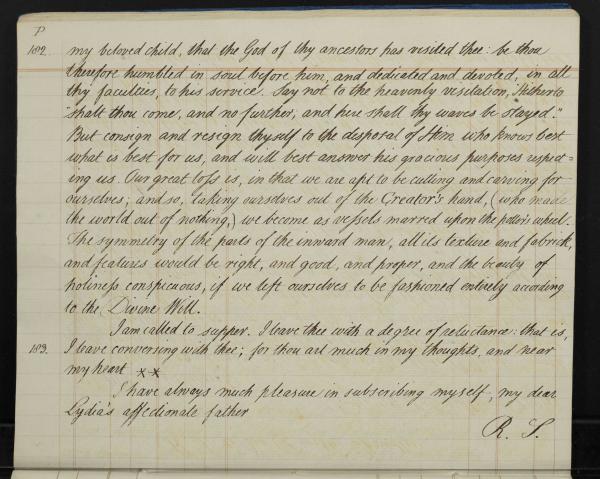 P
182. my beloved child, that the God of thy ancestors has visited thee: be thou
therefore humbled in soul before him, and dedicated and devoted, in all
thy faculties, to his service. Say not to the heavenly visitation, Hitherto
"shalt thou come, and no further, and here shall thy waves be stayed."
But consign and resign thyself to the disposal of Him who knows best
what is best for us, and will best answer his gracious purposes respect=
ing us. Our great loss is, in that we are apt to be cutting and carving for
ourselves; and so, taking ourselves out of the Creator's hand, (who made
the world out of nothing,) we become as vessels marred upon the potter's wheel.
The symmetry of the parts of the inward man, all its texture and fabrick,
and features would be right, and good, and proper, and the beauty of
holiness conspicuous, if we left ourselves to be fashioned entirely according
to the Divine Will.
I am called to supper. I leave thee with a degree of reluctance: that is,
183. I leave conversing with thee; for thou art much in my thoughts, and near
my heart x x
I have always much pleasure in subscribing myself, my dear
Lydia's affectionate father
R. S.